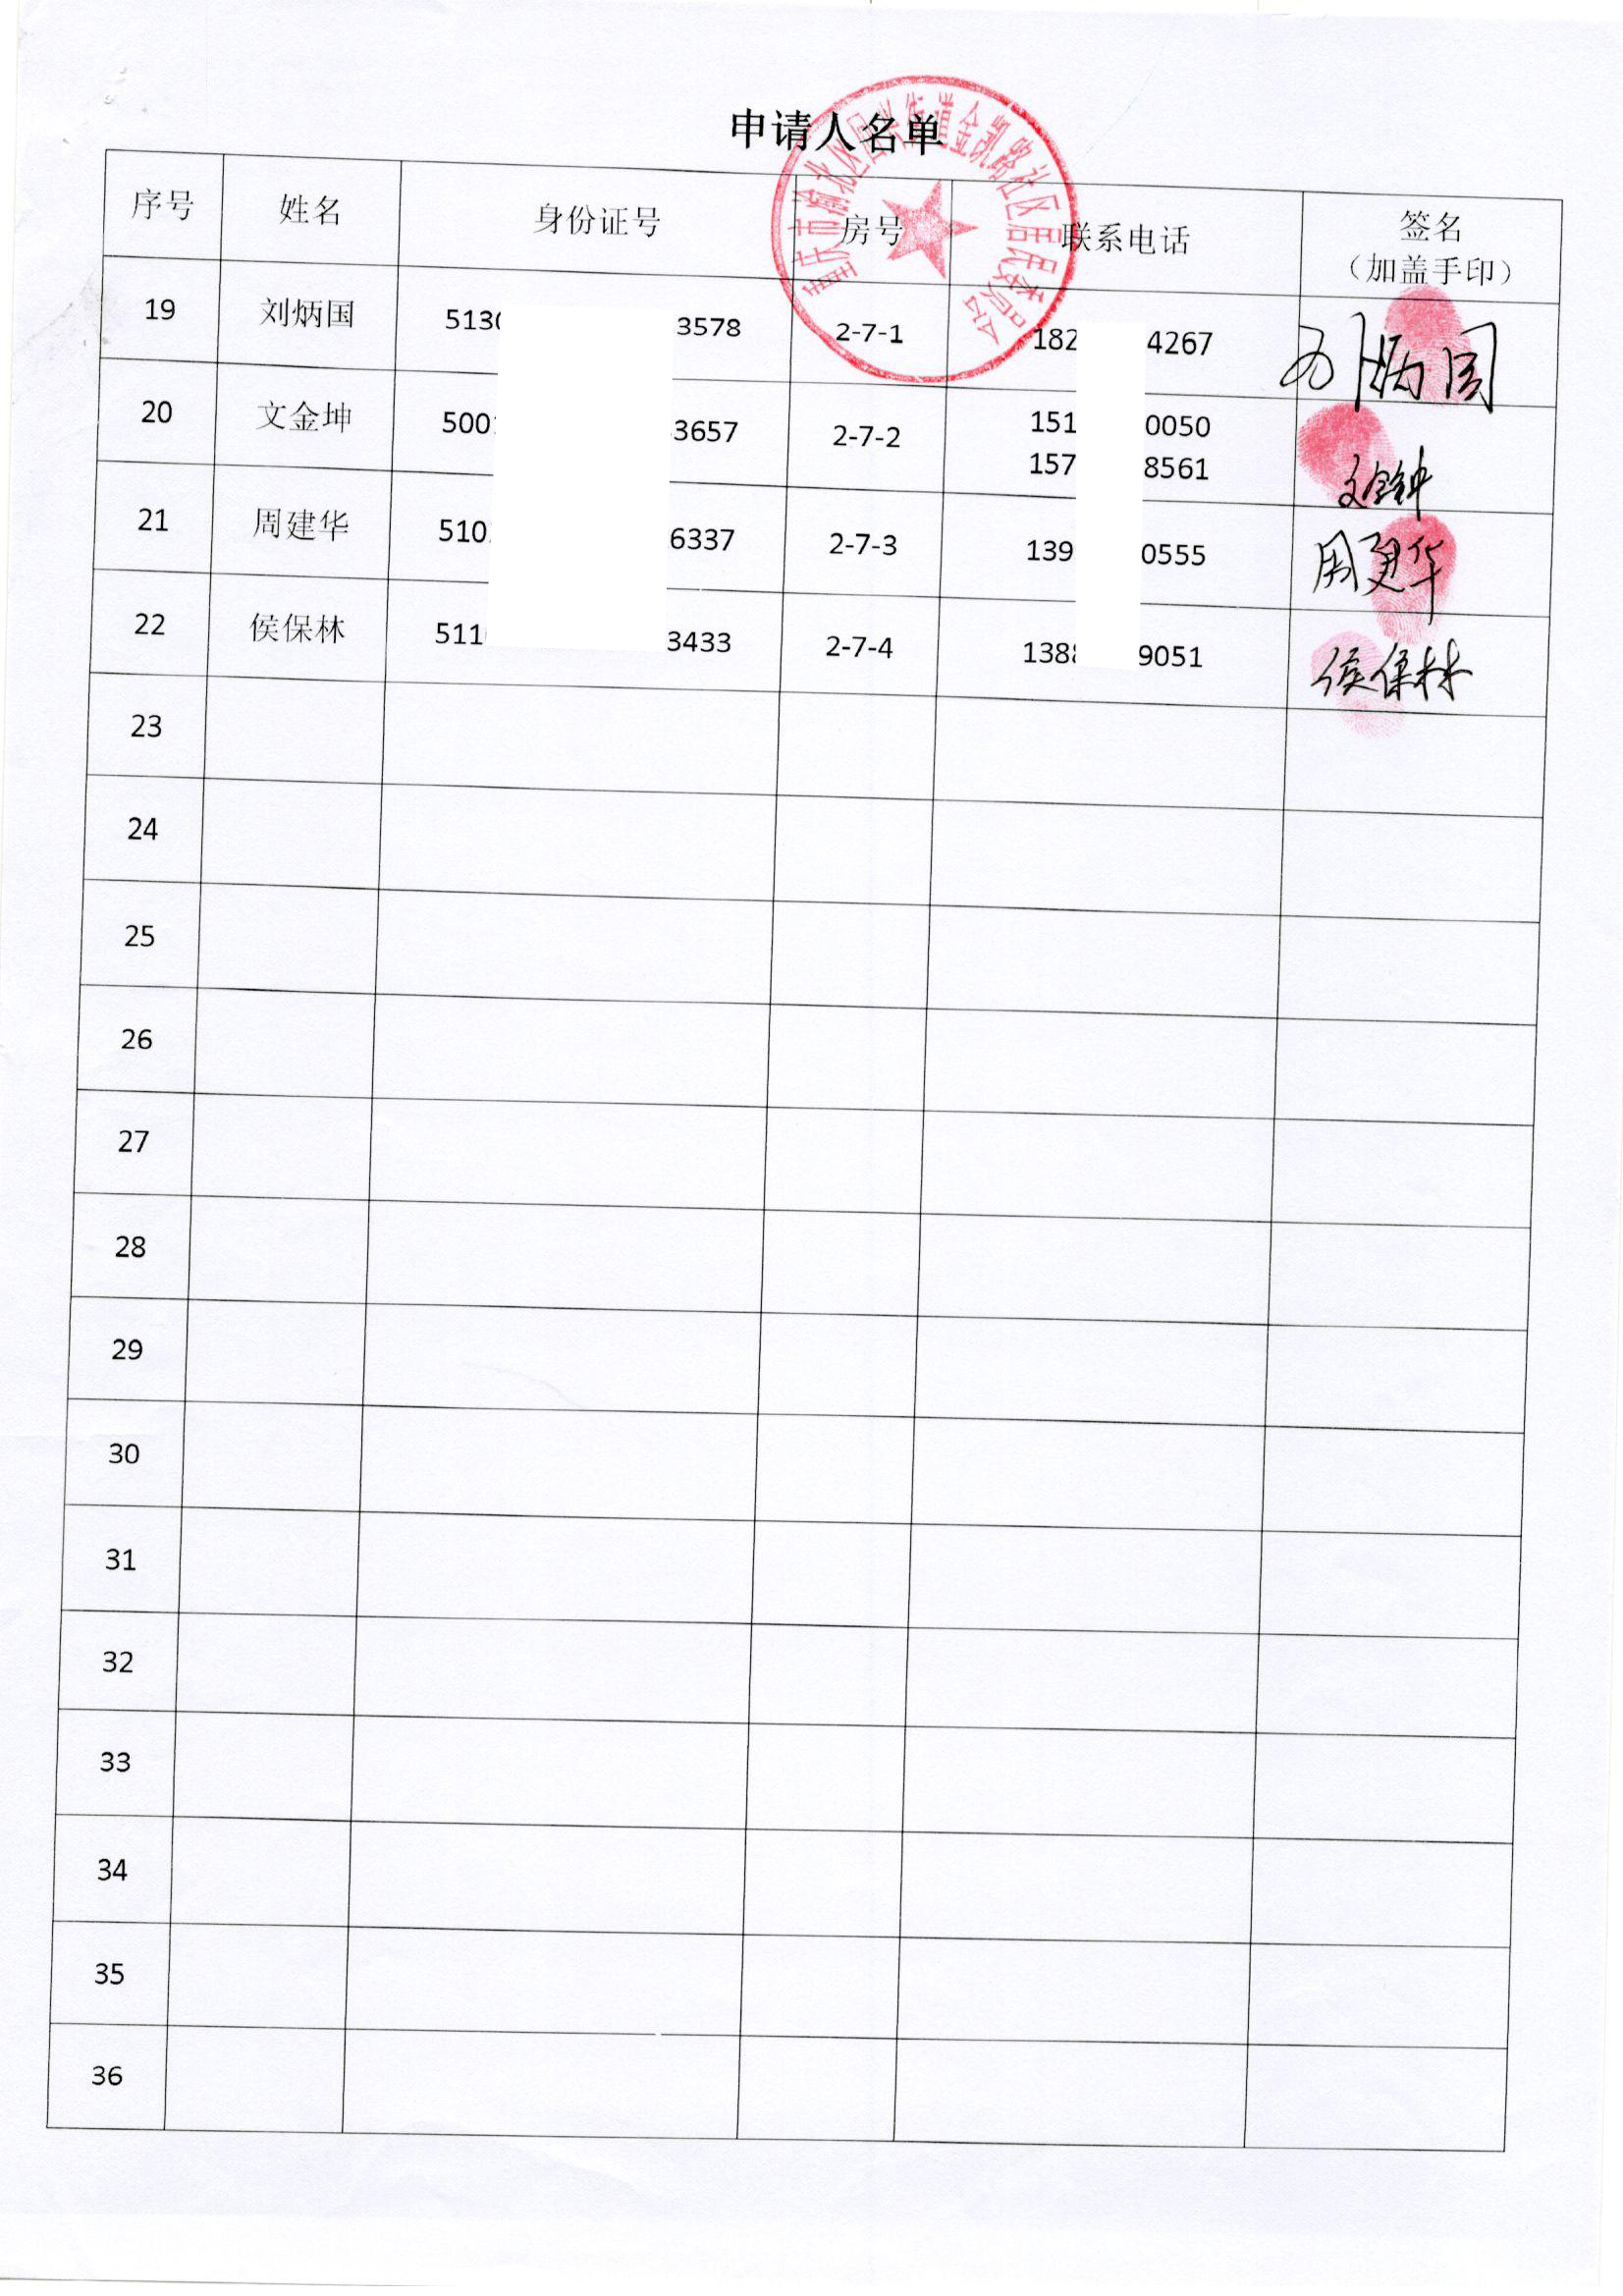 申请人名单
重庆市渝北区回兴街道金凯路社区居民委员会
序号 姓名 身份证号 房号 联系电话 签名
（加盖手印）
19 刘炳国 5130 3578 2-7-1 182 4267 刘炳国
20 文金坤 500 3657 2-7-2 151 0050
157 8561
21 周建华 510 6337 2-7-3 139 0555 周建华
22 侯保林 511 3433 2-7-4 138 9051 侯保林
23
24
25
26
27
28
29
30
31
32
33
34
35
36